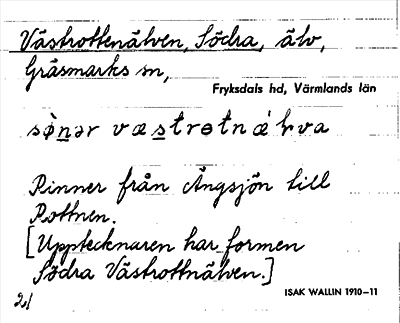 Västrottenälven, Södra, älv,
Gräsmarks sn,
Fryksdals hd, Värmlands län
sø̀n̲ər væs̲trɵtnǽɫva
Rinner från Ängsjön till
Rottnen.
[Upptecknaren har formen
Södra Västrottnälven.]
ISAK WALLIN 1910–11